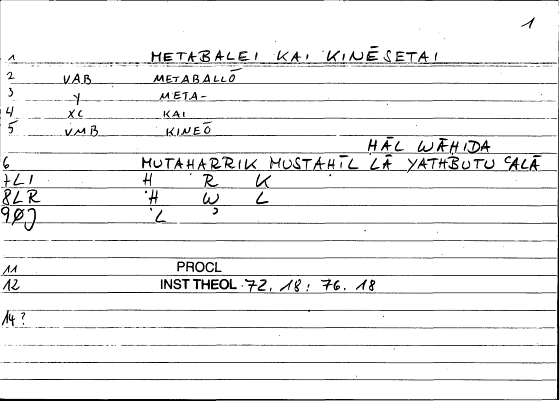 1
1 METABALEI KAI KINĒSETAI
2 VAB METABALLŌ
3 Y META-
4 XC KAI
5 VMB KINEŌ
HĀL WĀHIDA
6 MUTAHARRIK MUSTAHĪL LĀ YATHBUTU ʿALĀ
7LI H R K
8LR H W L
9ØJ L ʾ
11 PROCL
12 INST THEOL 72, 18: 76. 18
14?